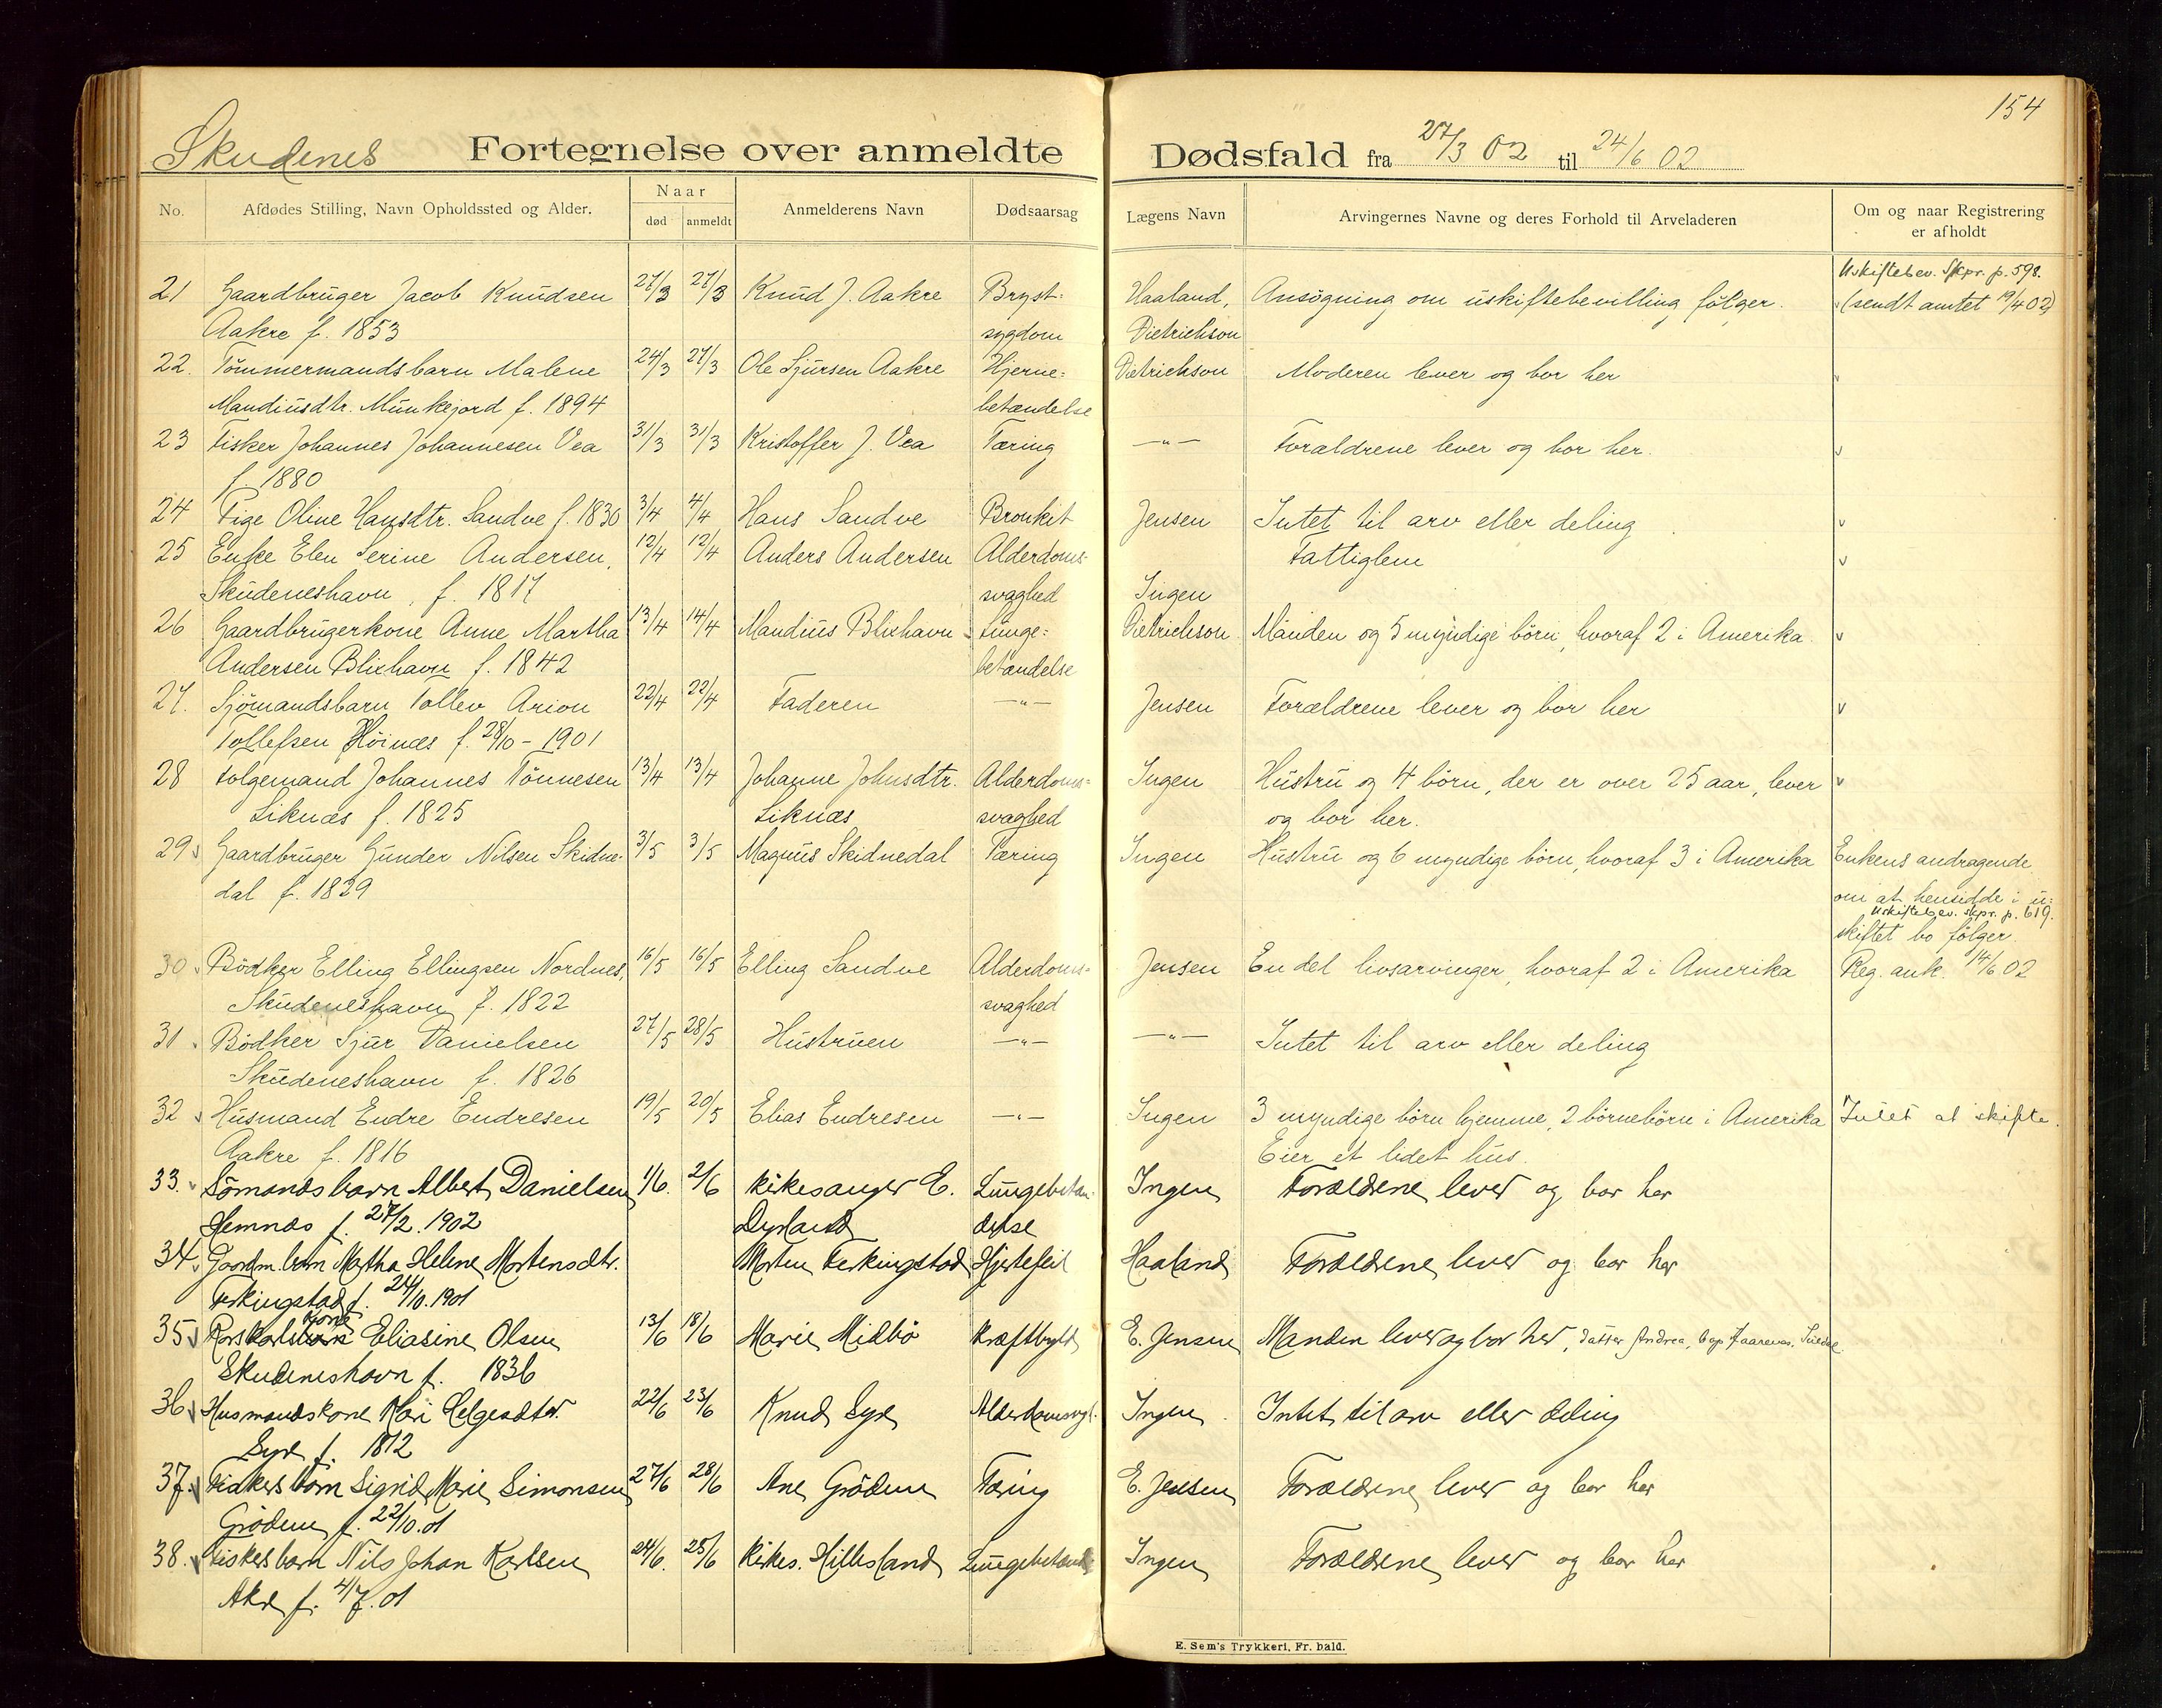 154
Skudenes Fortegnelse over anmeldte Dødsfald fra 27/3 02 til 24/6 02
No. Afdødes Stilling, Navn Opholdssted og Alder. Naar død anmeldt Anmelderens Navn Dødsaarsag Lægens Navn Arvingernes Navne og deres Forhold til Arveladeren Om og naar Registrering er afholdt
Uskiftebev. Skpr. p. 598.
21 Gaardbruger Jacob Knudsen 27/3 27/3 Knud J. Aakre Bryst= Haaland, Ansøgning om uskiftebevilling følger. (sendt amtet 19/4 02)
Aakre f. 1853 sygdom Dietrichson
22. Tømmermandsbarn Malene 24/3 27/3 Ole Sjursen Aakre Hjerne= Dietrichson Moderen lever og bor her
Mandiusdtr. Munkejord f. 1894 betændelse
23 Fisker Johannes Johannesen Vea 31/3 31/3 Kristoffer J. Vea Tæring —"— Forældrene lever og bor her.
f. 1880
24 Pige Oline Hansdtr. Sandve f. 1830 3/4 4/4 Hans Sandve Bronkit Jensen Intet til arv eller deling
25 Enke Elen Serine Andersen, 12/4 12/4 Anders Andersen Alderdoms- Fattiglem
Skudeneshavn, f. 1817 svaghed Ingen
26 Gaardbrugerkone Anne Martha 13/4 14/4 Mandius Blixhavn Lunge= Dietrichson. Manden og 5 myndige børn, hvoraf 2 i Amerika.
Andersen Blixhavn f. 1842 betændelse
27. Sjømandsbarn Tollev Arion 22/4 22/4 Faderen —"— Jensen Forældrene lever og bor her
Tollefsen Høinæs f. 28/10 - 1901
28 Folgemand Johannes Tønnesen 13/4 13/4 Johanne Johnsdtr. Alderdoms= Ingen Hustru og 4 børn, der er over 25 aar, lever
Liknæs f. 1825 Liknæs svaghed og bor her.
29 Gaardbruger Gunder Nilsen Skidne- 3/5 3/5 Magnus Skidnedal Tæring Ingen Hustru og 6 myndige børn, hvoraf 3 i Amerika Enkens andragende
dal f. 1829 om at hensidde i u-
Uskiftebev. skpr. p. 619.
skiftet bo følger.
30 Bødker Elling Ellingsen Nordnes, 16/5 16/5 Elling Sandve Alderdoms- Jensen En del livsarvinger, hvoraf 2 i Amerika Reg. ank. 14/6 02
Skudeneshavn f. 1822 svaghed
31 Bødker Sjur Danielsen 27/5 28/5 Hustruen —"— —"— Intet til arv eller deling
Skudeneshavn f. 1826
32 Husmand Endre Endresen 19/5 20/5 Elias Endresen —"— Ingen 3 myndige børn hjemme, 2 børnebørn i Amerika Intet at skifte.
Aakre f. 1816 Eier et lidet hus.
33. Sømandsbarn Albert Danielsen 1/6. 2/6 Kikesanger E. Lungebetæn- Ingen Forældrene lever og bor her
Hemnæs f. 27/2. 1902 Dyrland delse
34. Gaardm. barn Martha Helene Mortensdtr. Morten Ferkingstad Hjertefeil Haaland Forældrene lever og bor her
Ferkingstad f. 24/10. 1901
kone
35 Eliasine Olsen 13/6 18/6 Marie Midbø Kræftbyld E. Jensen Manden lever og bor her, datter Andrea,
Skudeneshavn f. 1836
36 Husmandskone Kari Helgesdtr. 22/6 23/6 Knud Syre Alderdomssvgh. Ingen. Intet til arv eller deling
Syre f. 1812
37. Fiskers barn Sigrid Marie Simonsen 27/6 28/6 Ane Grødem Tæring E. Jensen Forældrene lever og bor her
Grødem f. 22/10. 01
38. Fiskers barn Nils Johan Karlsen 24/6. 25/6 Kikes. Hillesland Lungebetænd. Ingen Forældrene lever og bor her
Akre f. 4/7. 01
E. Sem's Trykkeri, Fr. hald.